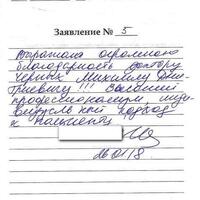 Заявление № 5
Выражала огромною
благодарность доктору
Черных Михаилу Дми-
триевичу!!! Высокий
профессионализм, инди-
видуальный подход
к пациенту
26.01.18